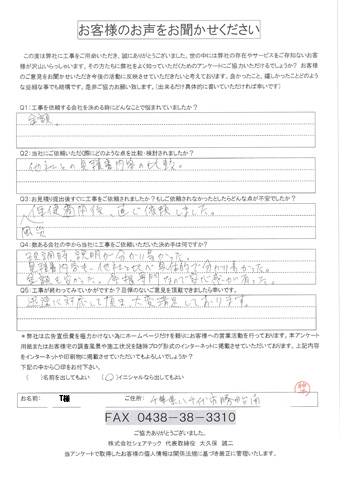 お客様のお声をお聞かせください
この度は弊社に工事をご用命いただき、誠にありがとうございました。世の中には弊社の存在やサービスをご存知ないお客
様が沢山いらっしゃいます。その方たちに弊社をよく知っていただくためのアンケートにご協力いただけるでしょうか? お客様
のご意見をお聞かせいただき今後の活動に反映させていただきたいと考えております。良かったこと、嬉しかったことどのよう
な些細な事でも結構です。是非ご協力お願い致します。(出来るだけ具体的に書いていただければ幸いです)
Q1:工事を依頼する会社を決める時にどんなことで悩まれていましたか?
金額。
Q2:当社にご依頼いただく際にどのような点を比較・検討されましたか?
他社との見積書内容の比較。
Q3:お見積り提出後すぐに工事をご依頼されましたか?もしご依頼されなかったとしたらどんな点が不安でしたか?
直ぐ依頼しました。
火災
Q4:数ある会社の中から当社に工事をご依頼いただいた決め手は何ですか?
現調時、説明が分かり易かった。
見積書内容も、他社と比べ具体的で分かり易かった。
金額も安かった。屋根専門なので安心感が有った。
Q5:工事が終わってみていかがですか?忌憚のないご意見を頂戴できましたら幸いです。
迅速に対応して頂き、大変満足しております。
*弊社は広告宣伝費を極力かけない為にホームページだけを頼りにお客様への営業活動を行っております。本アンケート
用紙またはお客様宅の調査風景や施工状況を随時ブログ形式のインターネットに掲載させていただいております。上記内容
をインターネットや印刷物に掲載させていただいてもよろしいでしょうか?
下記の中から〇印をお付下さい。
( )名前を出してもよい (〇)イニシャルなら出してもよい
お名前: T様 ご住所: 千葉県八千代市勝田台南
FAX 0438-38-3310
ご協力ありがとうございました。
株式会社シェアテック 代表取締役 大久保 誠二
当アンケートで取得したお客様の個人情報は関係法規に基づき厳正に管理いたします。